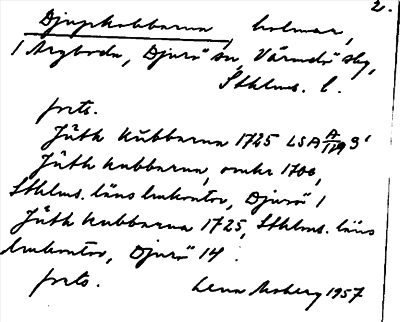 2.
Djupkobbarna, holmar,
i Aspboda, Djurö sn, Värmdö skg,
Sthlms. l.
forts.
Júth Kŭbbarna 1725 LSA A/119 3'
Júth kubbarna, omkr 1700,
Sthlms. läns lmkontor, Djurö 1
Júth Kubbarna 1725, Sthlms. läns
lmkontor, Djurö 14
forts. Lena Moberg 1957